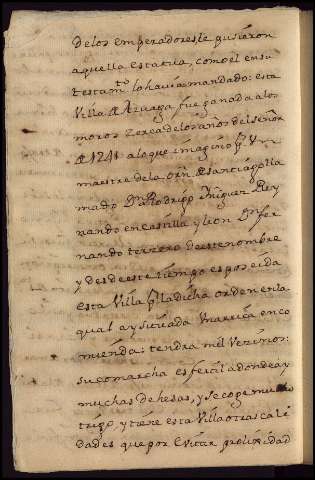 delos emperadores le pusieron
aquella estatua, como el en su
testamto lo havia mandado: esta
Villa de Azuaga fue ganada a los
moros zerca de los años del señor
de 1241 alo que imagino pr Vn
maestre de la orn de Santiago lla
mado Dn Rodrigo Yñiguez Rey
nando en castilla y leon Dn fer
nando terzero de este nombre
y desde este tiempo es poseida
esta Villa pr la dicha orden en la
qual ay situada vna rrica enco
mienda: tendra mil Vezinos:
su comarcha es fertil adonde ay
muchas dehesas, y se coge mucho
trigo, y tiene esta Villa otras cali
dades que por evitar prolixidad